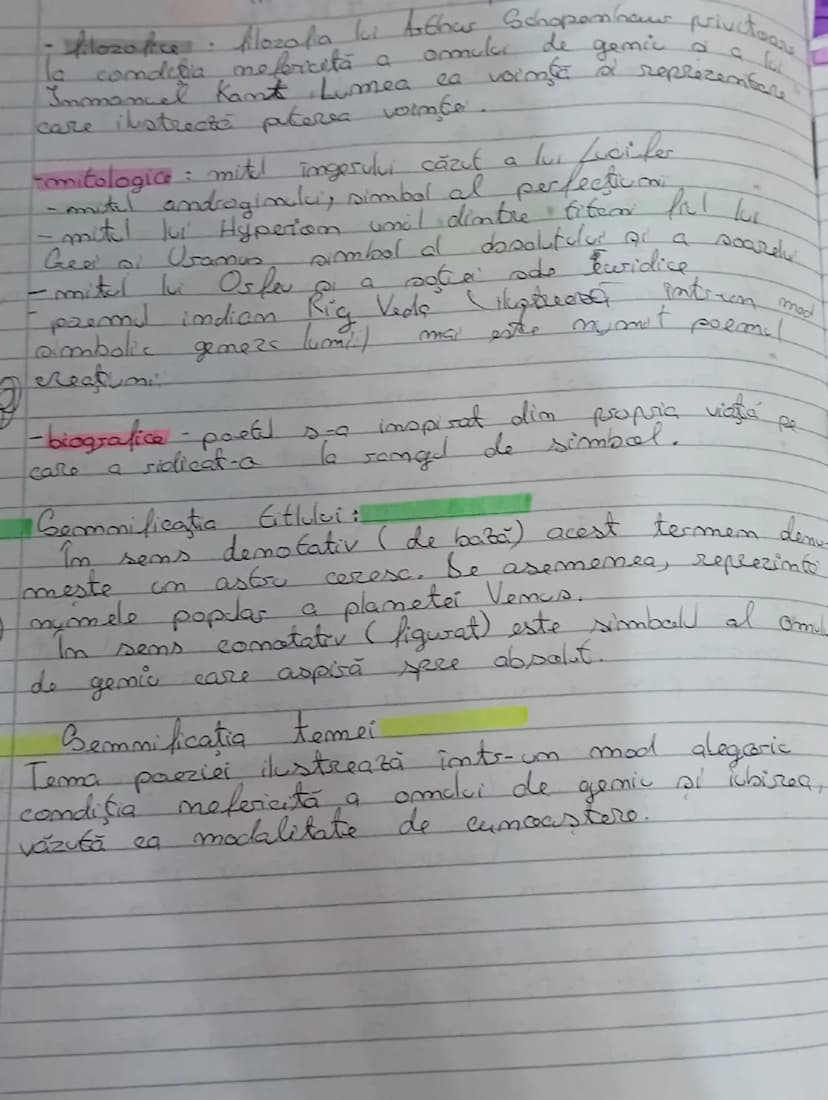 - filozofice : filozofia lui Arthur Schopenhauer privitoare
la condiția nefericită a omului de geniu și a lui
Immanuel Kant. Lumea ca voință și reprezentare
care ilustrează puterea voinței.
-mitologice : mitul îngerului căzut a lui Lucifer
- mitul androginului, simbol al perfecțiunii
- mitul lui Hyperion unul dintre titani fiul lui
Geei și Uranus simbol al absolutului și a soarelui
- mitul lui Orfeu și a soției sale Euridice
- poemul indian Rig Veda (ilustrează într-un mod
simbolic geneza lumii) mai este numit poemul
creațiunii
-biografice - poetul s-a inspirat din propria viață pe
care a ridicat-a la rangul de simbol.
Semnificația titlului:
În sens denotativ (de bază) acest termen denu
mește un astru ceresc. De asemenea, reprezintă
numele popular a planetei Venus.
În sens conotativ (figurat) este simbolul al omului
de geniu care aspiră spre absolut.
Semnificația temei
Tema poeziei ilustrează într-un mod alegoric
condiția nefericită a omului de geniu și iubirea,
văzută ca modalitate de cunoaștere.